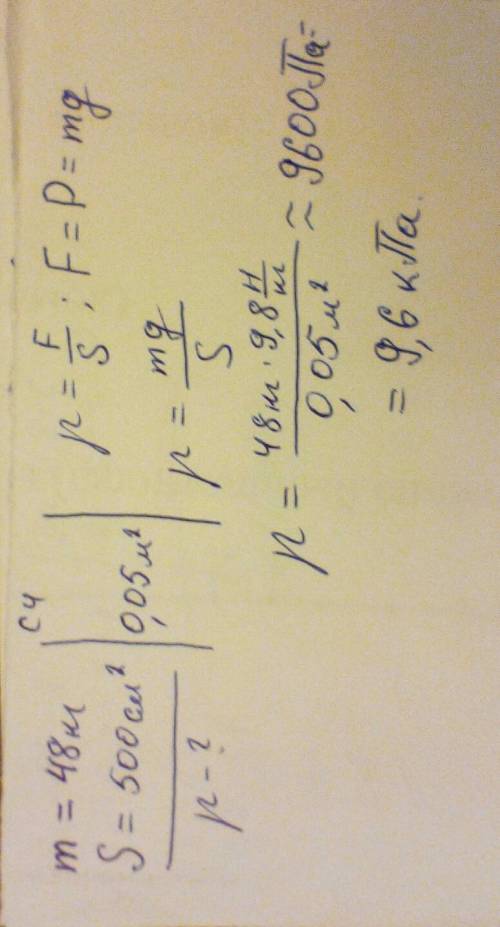 m = 48кг
S = 500см²
p - ?
СИ
0,05м²
p = F/S ; F = P = mg
p = mg/S
p = 48кг · 9,8 Н/кг / 0,05м² ≈ 9600Па =
= 9,6 кПа.